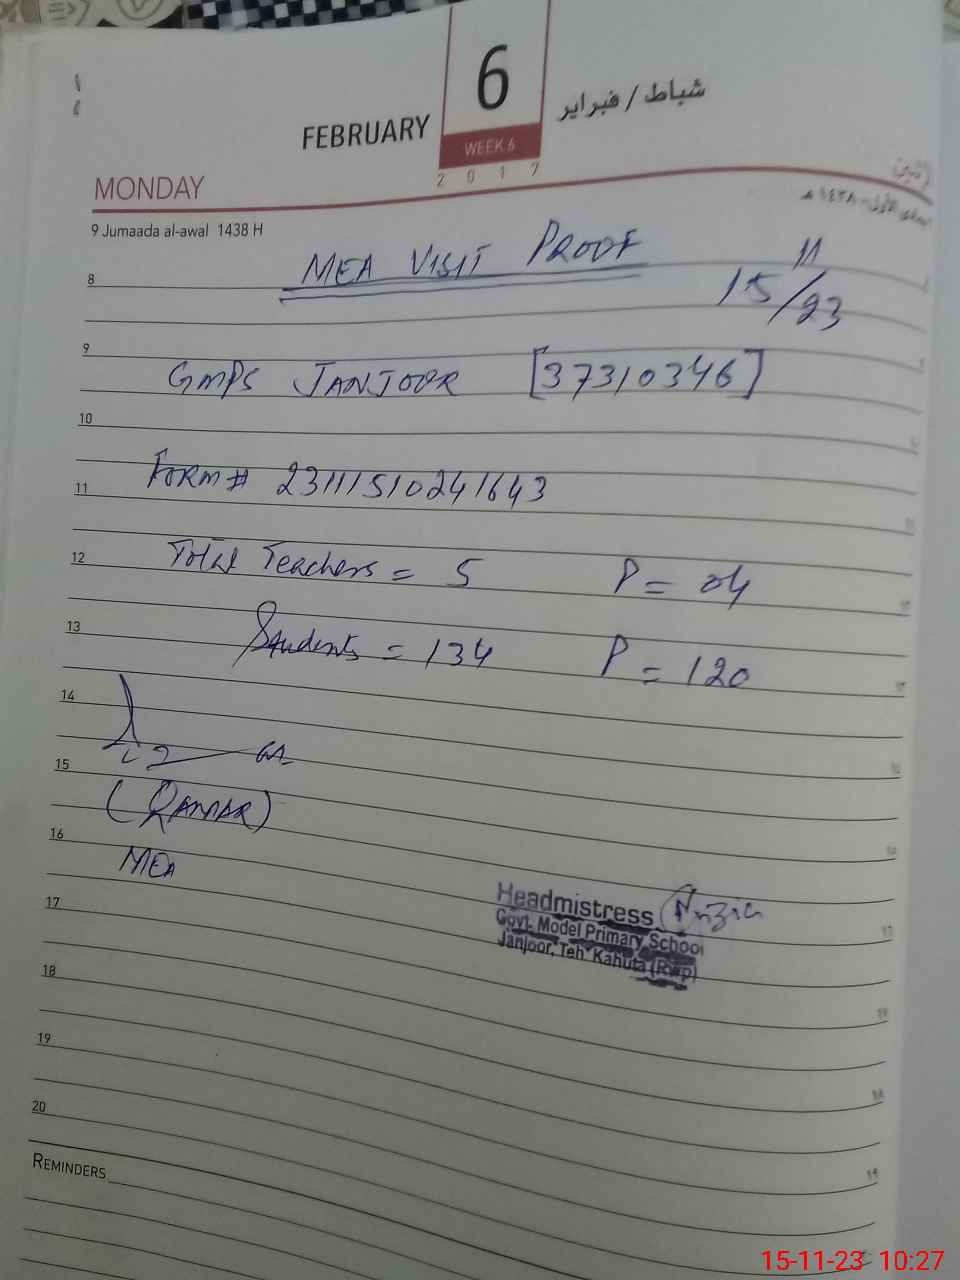 6
FEBRUARY
شباط / فبراير
WEEK 6
2 0 1 7
MONDAY
9 Jumaada al-awal 1438 H
MEA VISIT PROOF
11
15/23
8
9
GMPS JANJOOR [37310346]
10
FORM # 23111510241643
11
Total Teachers = 5 P = 04
12
Students = 134 P = 120
13
14
15
(QAMAR)
16
MEA
17
Headmistress
Govt. Model Primary School
Janjoor, Teh: Kahuta (Rwp)
18
19
20
REMINDERS
15-11-23 10:27